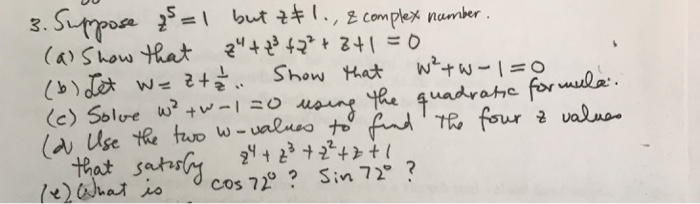 3. Suppose z⁵ = 1 but z ≠ 1., z complex number.
(a) Show that z⁴ + z³ + z² + z + 1 = 0
(b) Let w = z + 1/z. Show that w² + w - 1 = 0
(c) Solve w² + w - 1 = 0 using the quadratic formula.
(d) Use the two w-values to find the four z values
that satisfy z⁴ + z³ + z² + z + 1
(e) What is cos 72° ? Sin 72° ?